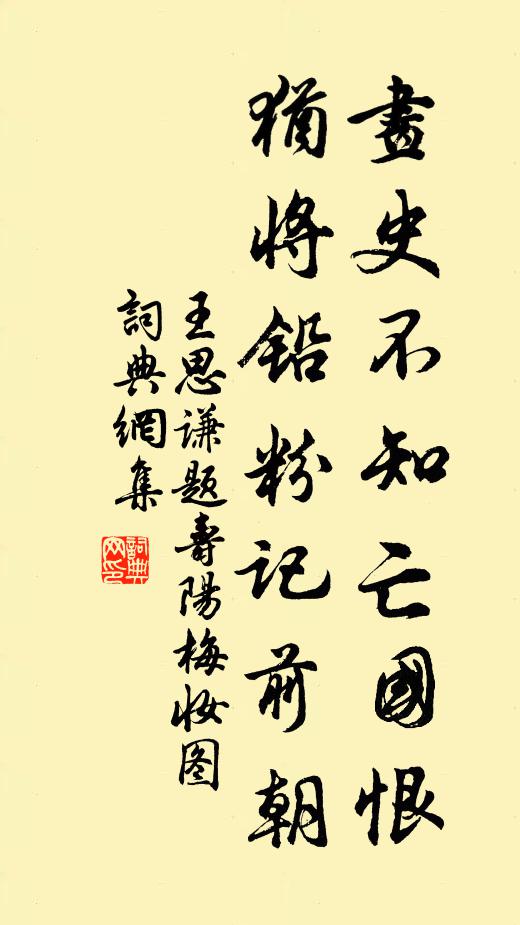 畫史不知亡國恨
猶將鉛粉記前朝
王思谦题壽陽梅妆图
詞典網集
詞典網印